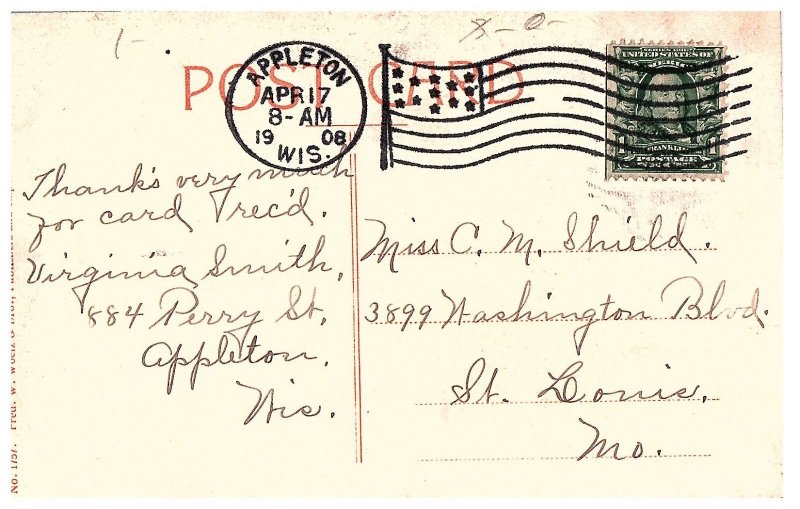 1-
8-0-
POST CARD
APPLETON
APR 17
8-AM
19 08
WIS.
SERIES 1902
UNITED STATES OF
FRANKLIN
POSTAGE
Thank's very much
for card rec'd.
Virginia Smith,
884 Perry St,
Appleton,
Wis.
Miss C. M. Shield.
3899 Washington Blvd.
St. Louis,
Mo.
No. 1757. Fred. W.